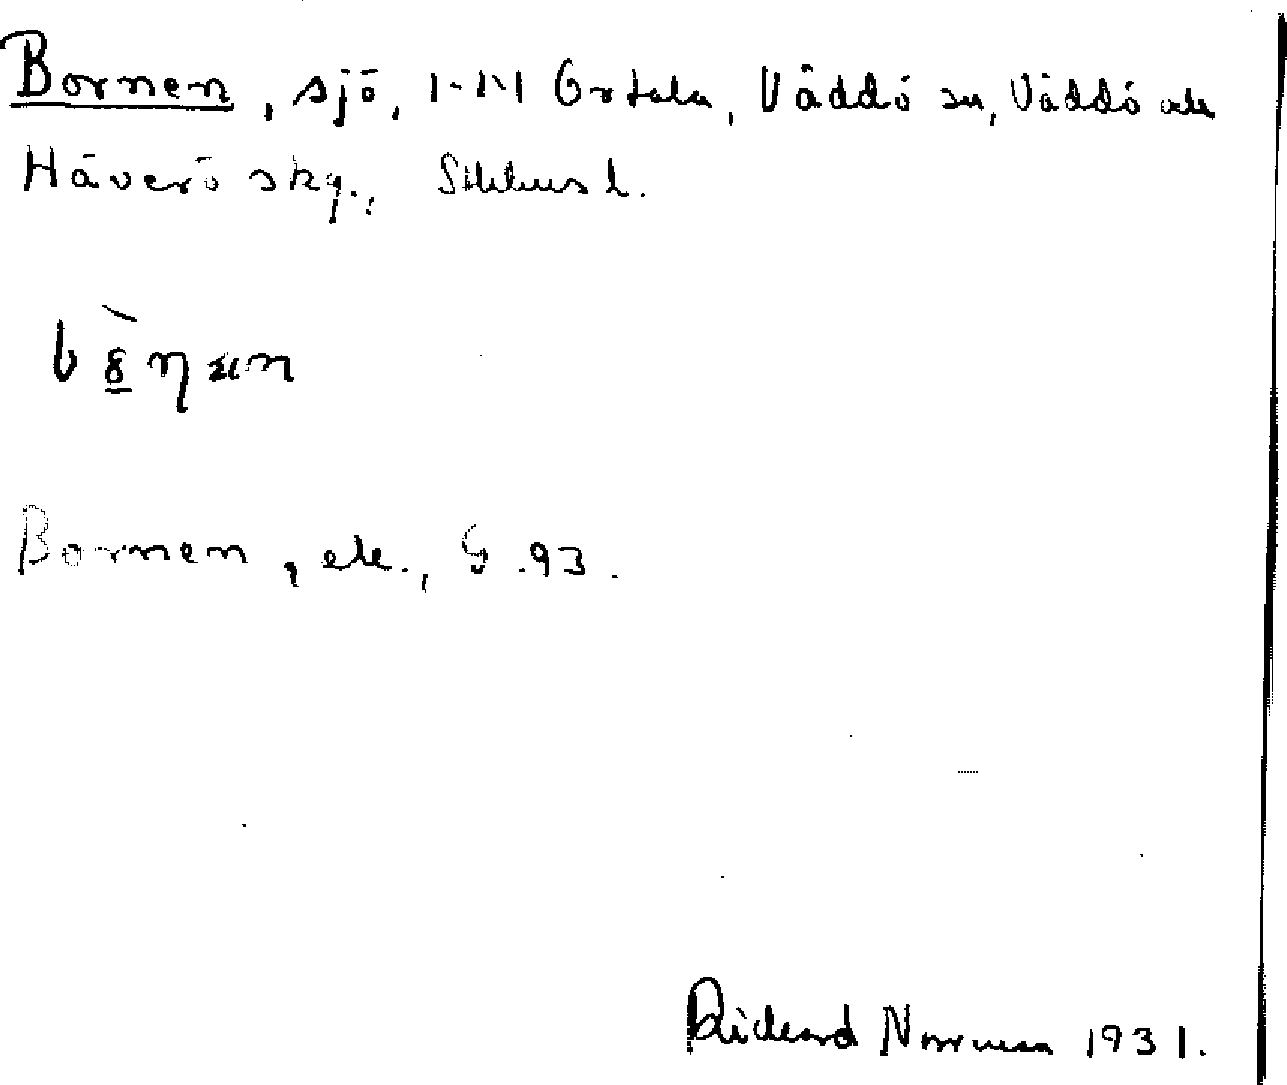 Bornen, sjö, Ortala, Väddö sn, Väddö och
Häverö skg., Sthlms l.
Bornen, ek., G.93.
Rickard Norrman 1931.